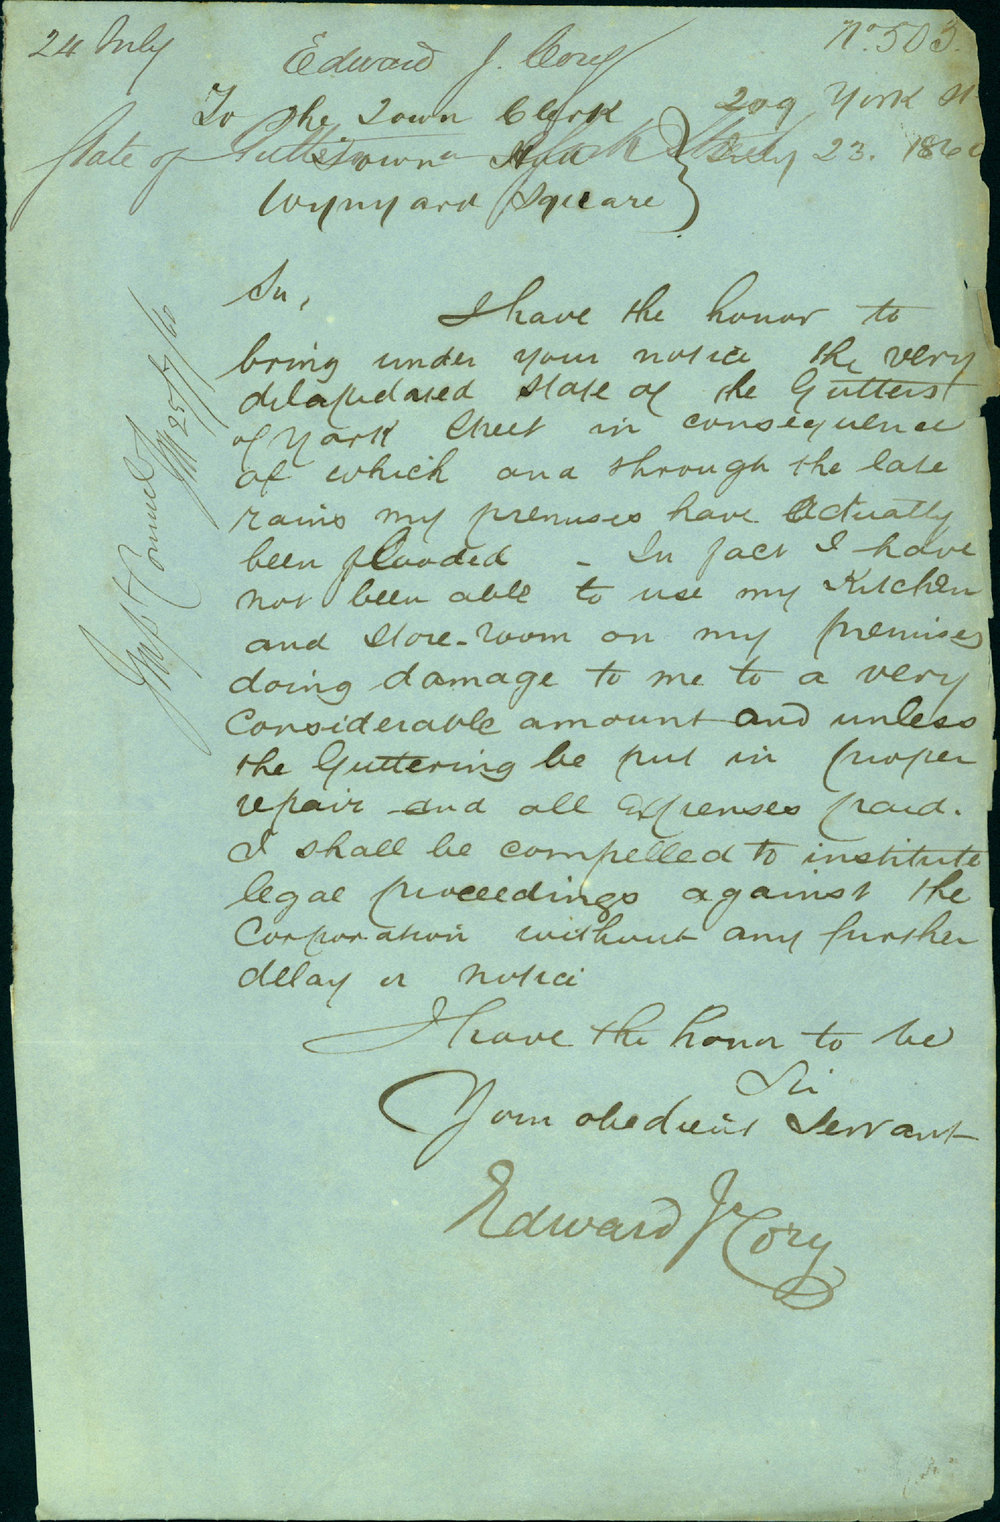 24 July
No. 503.
Edward J. Cory
To the Town Clerk
209 York St
State of Gutters York Street
Town Hall
July 23. 1860
Wynyard Square
Sir,
I have the honor to
bring under your notice the very
delapidated state of the Gutters
of York Street in consequence
of which and through the late
rains my premises have actually
been flooded - In fact I have
not been able to use my Kitchen
and Store-room on my premises
doing damage to me to a very
Considerable amount and unless
the Guttering be put in proper
repair and all Expenses paid.
I shall be compelled to institute
legal proceedings against the
Corporation without any further
delay or notice
I have the honor to be
Sir
Your obedient Servant
Edward J Cory
25/7/60